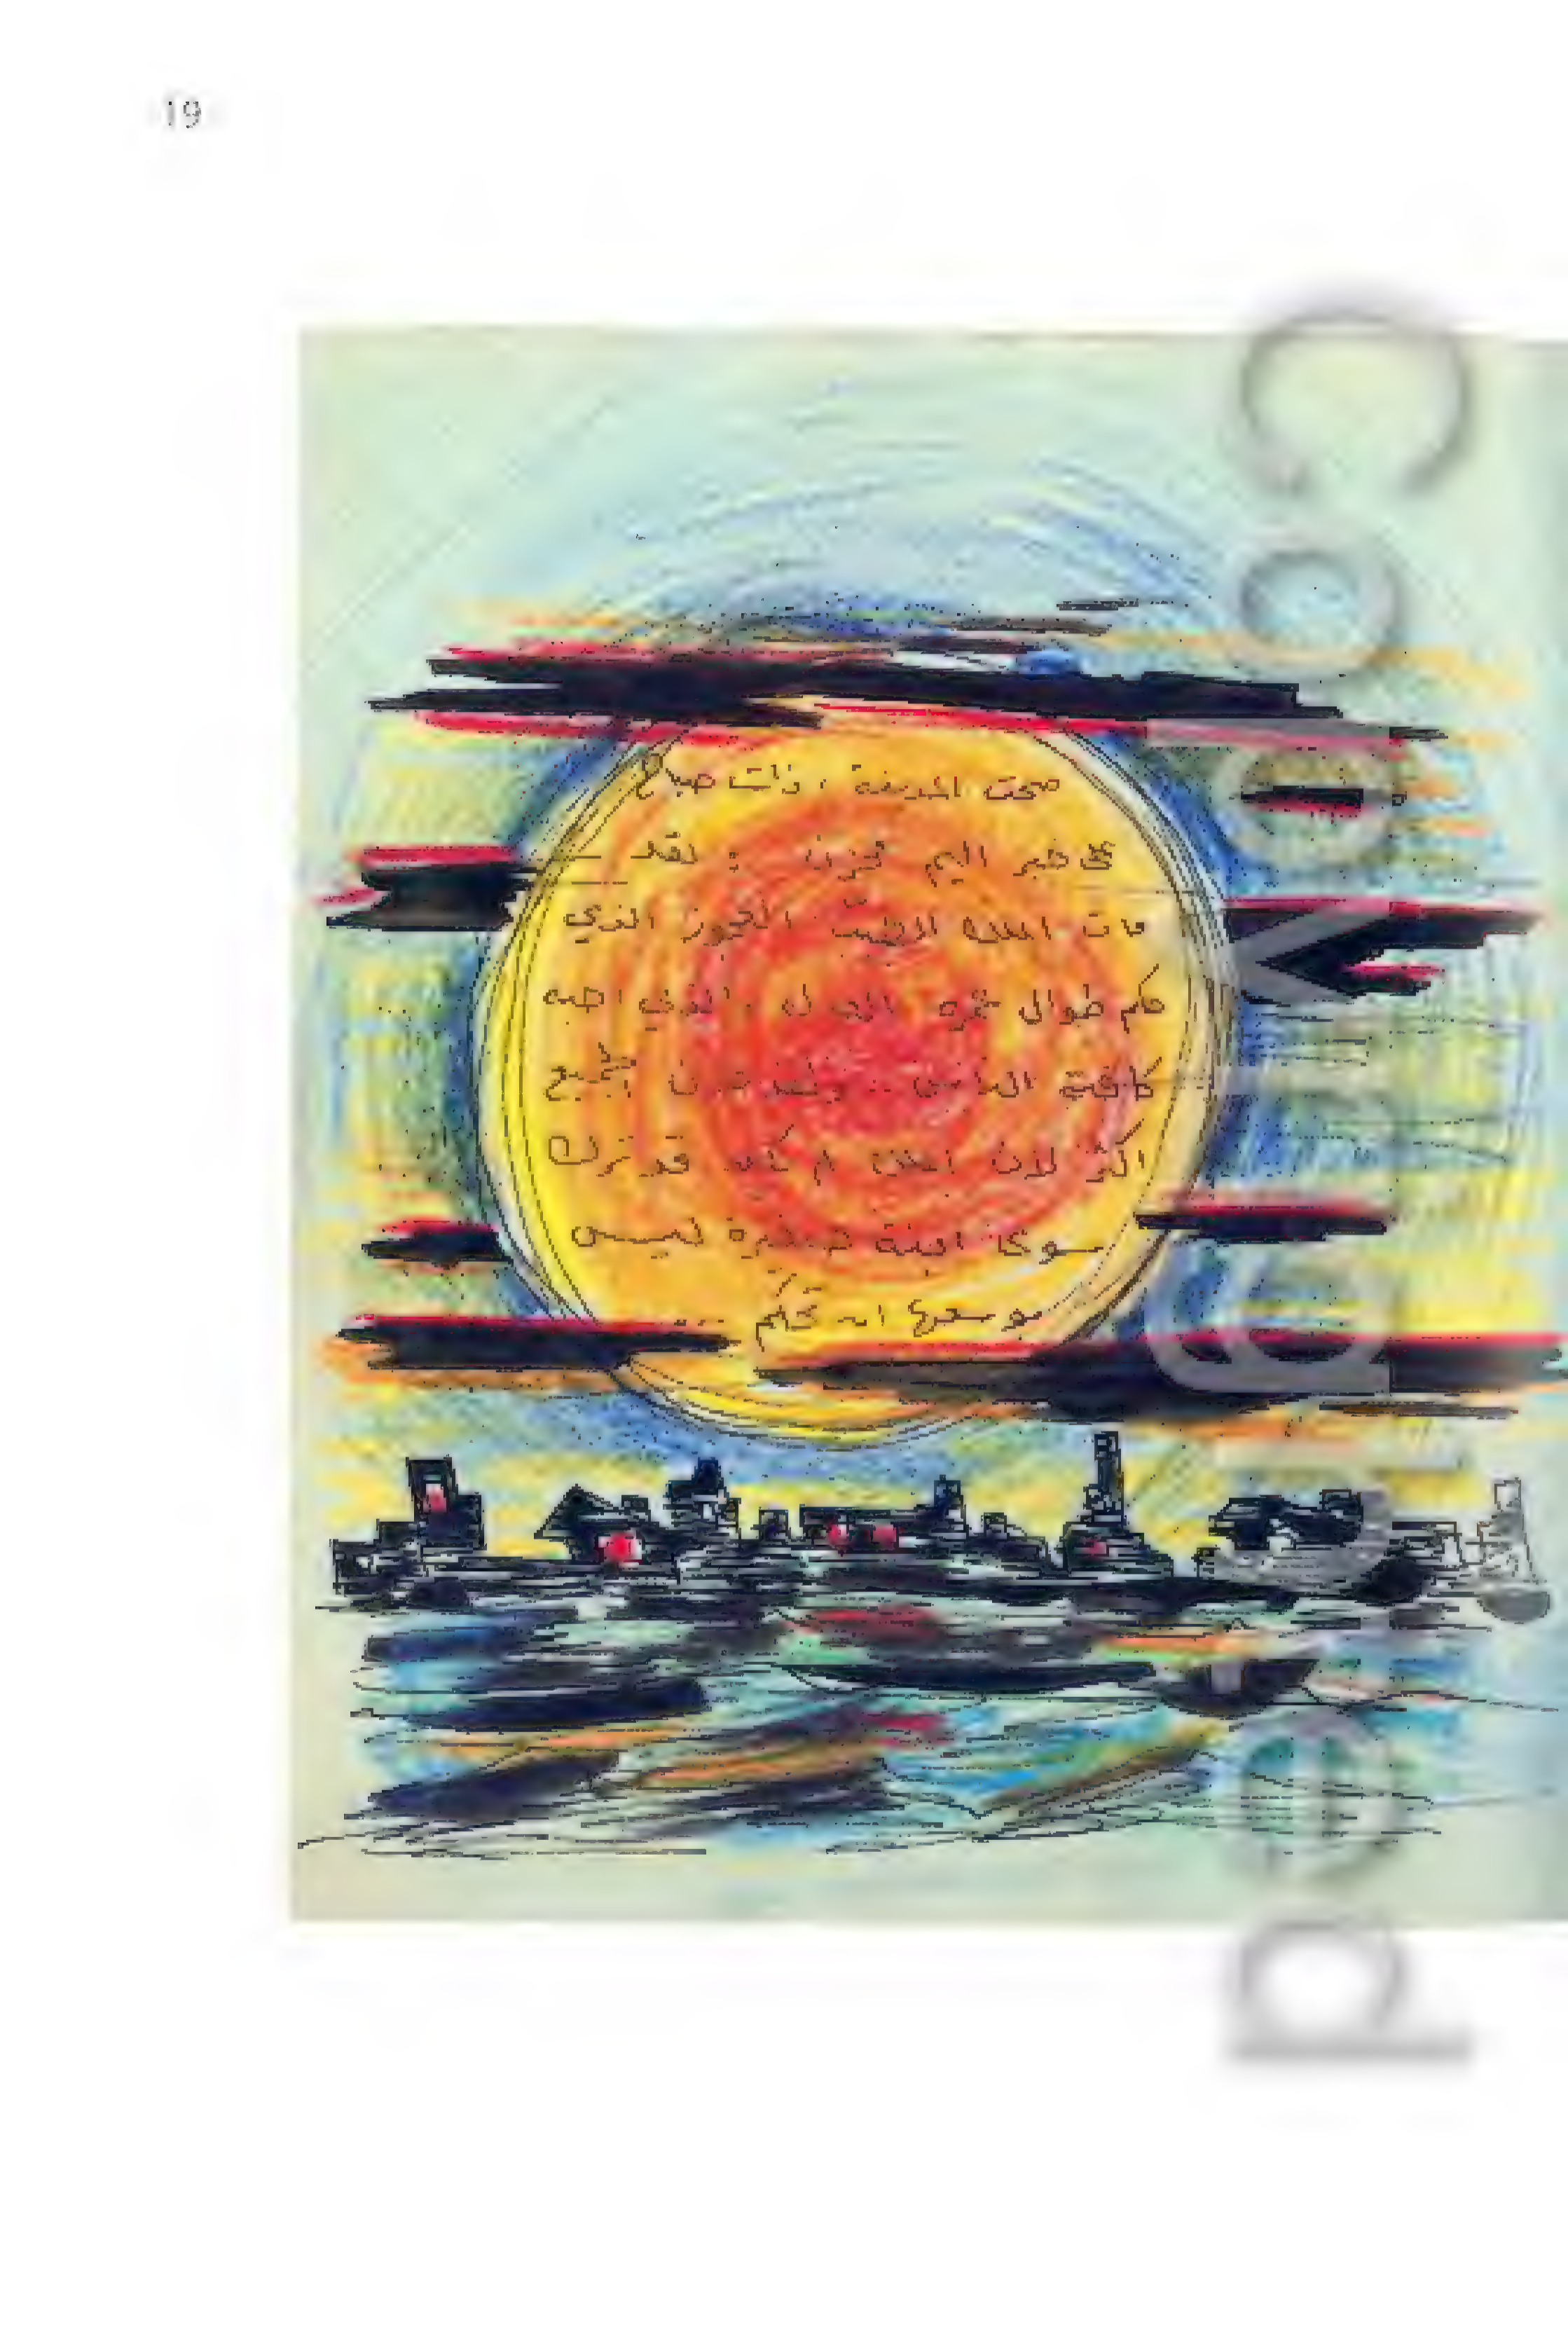 19
صحت المدينة، ذات صباح
على خبر اليم محزن : فقد
مات الملك الطيب العجوز الذي
حكم طوال عمره بالعدل، والذي احبه
كافة الناس .. ولقد حزن الجميع
اكثر لان الملك لم يكن قد ترك
سوى ابنة صغيرة ليس
بوسعها ان تحكم ...
Copyrighted